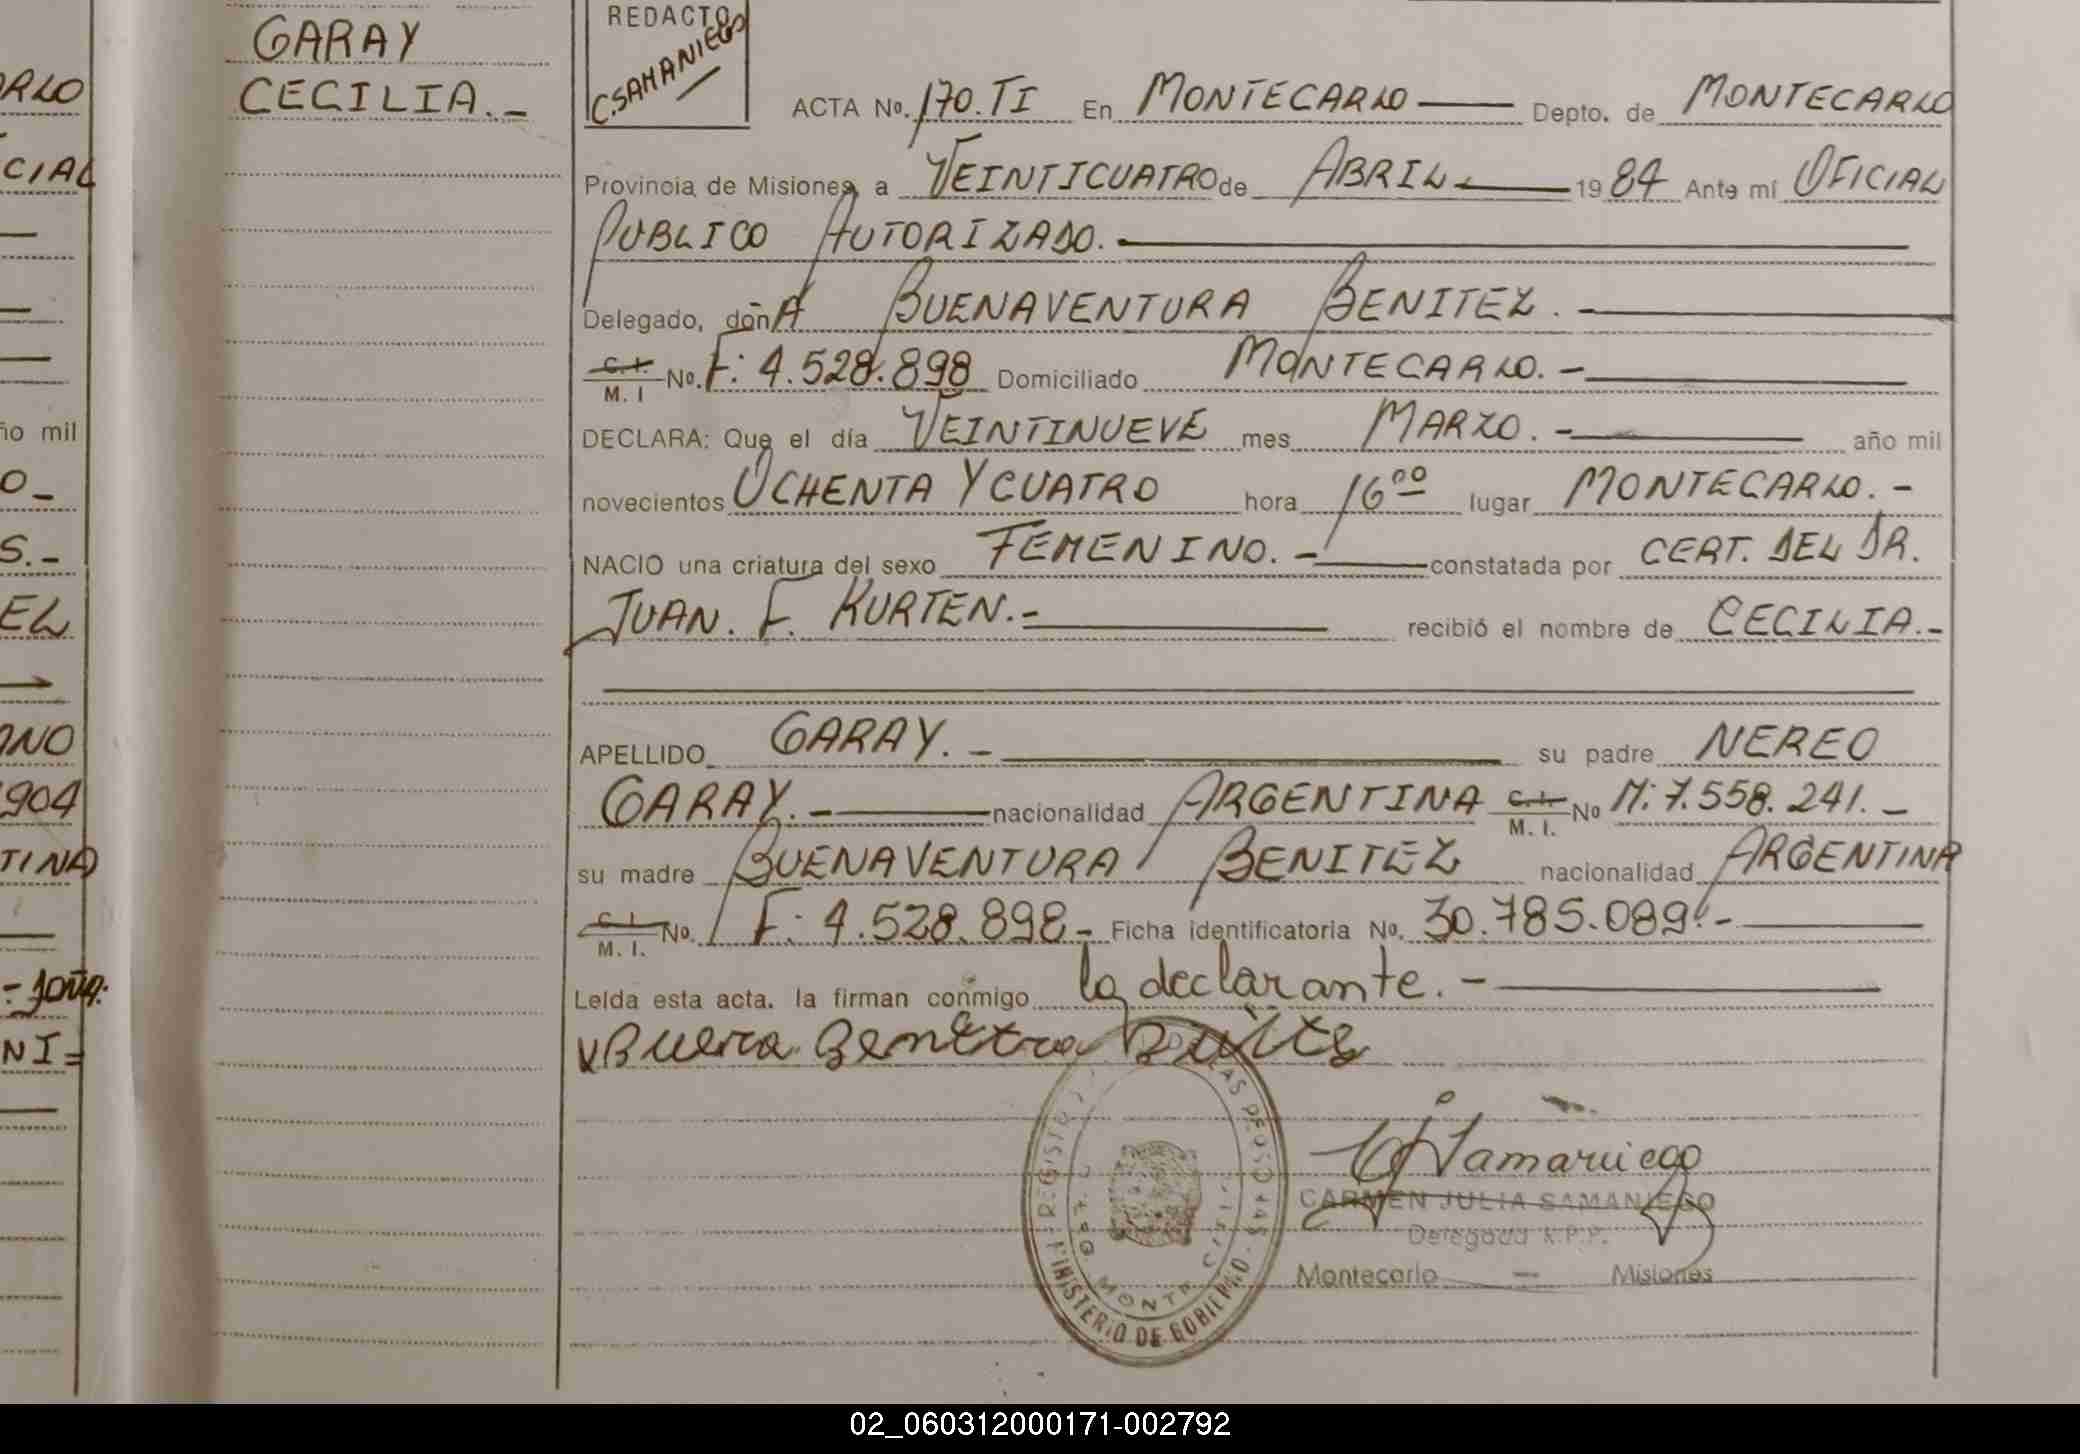 GARAY
CECILIA.-
REDACTO
C.SAMANIEGO
ACTA No. 170.TI En MONTECARLO Depto. de MONTECARLO
Provincia de Misiones, a VEINTICUATRO de ABRIL.- 1984 Ante mí OFICIAL
PUBLICO AUTORIZADO.-
Delegado, doñA BUENAVENTURA BENITEZ.-
C.I. M.I No. F: 4.528.898 Domiciliado MONTECARLO.-
DECLARA: Que el día VEINTINUEVE mes MARZO.- año mil
novecientos OCHENTA Y CUATRO hora 16 00 lugar MONTECARLO.-
NACIO una criatura del sexo FEMENINO.- constatada por CERT. DEL DR.
JUAN. F. KURTEN.- recibió el nombre de CECILIA.-
APELLIDO GARAY.- su padre NEREO
GARAY.- nacionalidad ARGENTINA C.I. M.I. No M: 7.558.241.-
su madre BUENAVENTURA BENITEZ nacionalidad ARGENTINA
C.I. M.I. No. F: 4.528.898- Ficha identificatoria No. 30.785.089.-
Leída esta acta. la firman conmigo la declarante.-
Buena
Samaniego
CARMEN JULIA SAMANIEGO
Delegada R.P.P.
Montecarlo - Misiones
REGISTRO DE LAS PERSONAS
MINISTERIO DE GOBIERNO
ARLO
CIAL
ño mil
O-
S.-
EL
ANO
904
TINA
NI=
02_060312000171-002792